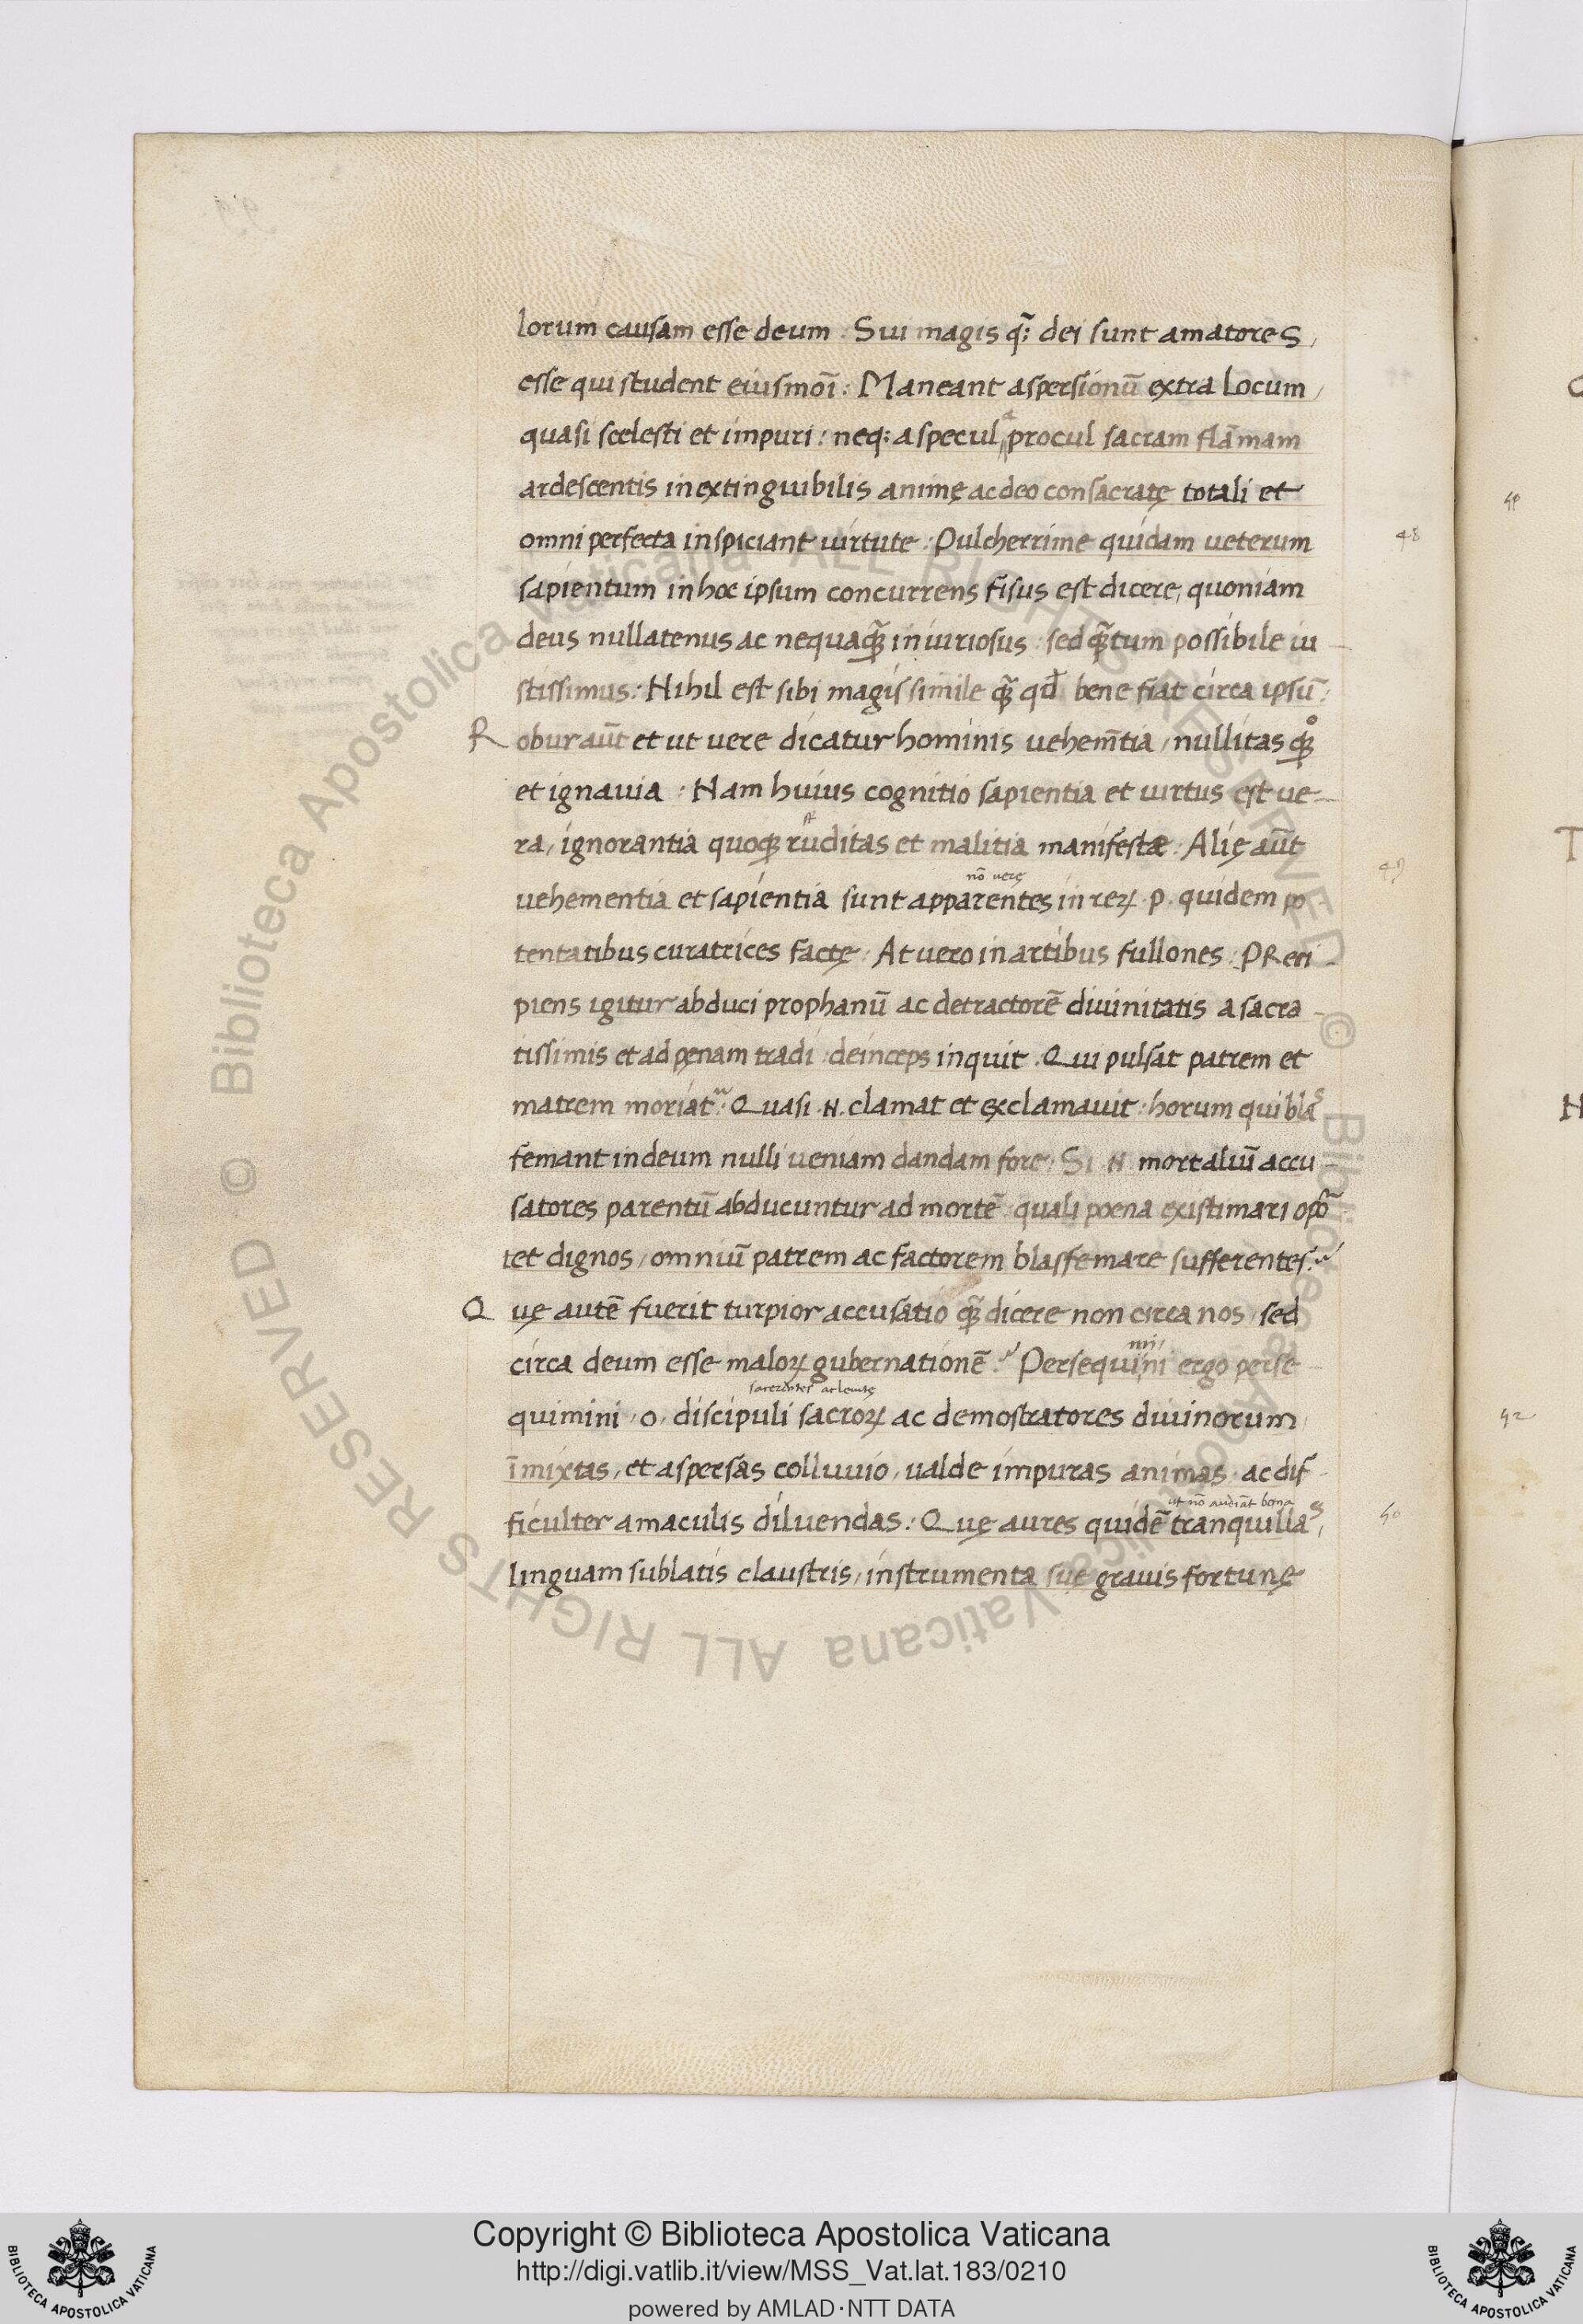 lorum causam esse deum : Sui magis q̃: dei sunt amatores,
esse qui student eiusmoı̃ : Maneant aspersionũ extra locum,
quasi scelesti et impuri : neq: a specula procul sacram flãmam
ardescentis inextinguibilis animę ac deo consacratę totali et
omni perfecta inspiciant uirtute : Pulcherrime quidam ueterum
48
sapientum in hoc ipsum concurrens fisus est dicere, quoniam
deus nullatenus ac nequaqꝫ̃ iniuriosus : sed qꝫ̃tum possibile iu-
stissimus : Nihil est sibi magis simile qꝫ̃ qd̃ bene fiat circa ipsũ :
Robur aũt et ut uere dicatur hominis uehem̃tia, nullitas qꝫ̊
et ignauia : Nam huius cognitio sapientia et uirtus est ue-
ra, ignorantia quoqꝫ ruditas et malitia manifestæ : Alię aũt
49
nõ verę
uehementia et sapientia sunt apparentes in reꝝ . p . quidem po
tentatibus curatrices factę : At uero in artibus fullones : PReci-
piens igitur abduci prophanũ ac detractorẽ diuinitatis a sacra-
tissimis et ad pęnam tradi : deinceps inquit . Qui pulsat patrem et
matrem moriat᷑ : Quasi .N. clamat et exclamauit : horum qui blas
femant in deum nulli ueniam dandam fore : Si .N. mortaliũ accu-
satores parentũ abducuntur ad mortẽ : quali poena existimari opõr
tet dignos, omniũ patrem ac factorem blasfemare sufferentes ?
Quę autẽ fuerit turpior accusatio qꝫ̃ dicere non circa nos, sed
circa deum esse maloꝝ gubernationẽ ? Persequimini ergo perse-
quimini, o, discipuli sacroꝝ ac demostratores diuinorum,
ı̃mixtas, et aspersas colluuio, ualde impuras animas ac dif-
ut nõ audiãt bona
ficulter a maculis diluendas : Quę aures quidẽ tranquillas,
50
linguam sublatis claustris, instrumenta suę grauis fortunę
52
Copyright © Biblioteca Apostolica Vaticana
http://digi.vatlib.it/view/MSS_Vat.lat.183/0210
powered by AMLAD·NTT DATA
BIBLIOTECA APOSTOLICA VATICANA
BIBLIOTECA APOSTOLICA VATICANA
© Biblioteca Apostolica Vaticana ALL RIGHTS RESERVED © Biblioteca Apostolica Vaticana ALL RIGHTS RESERVED